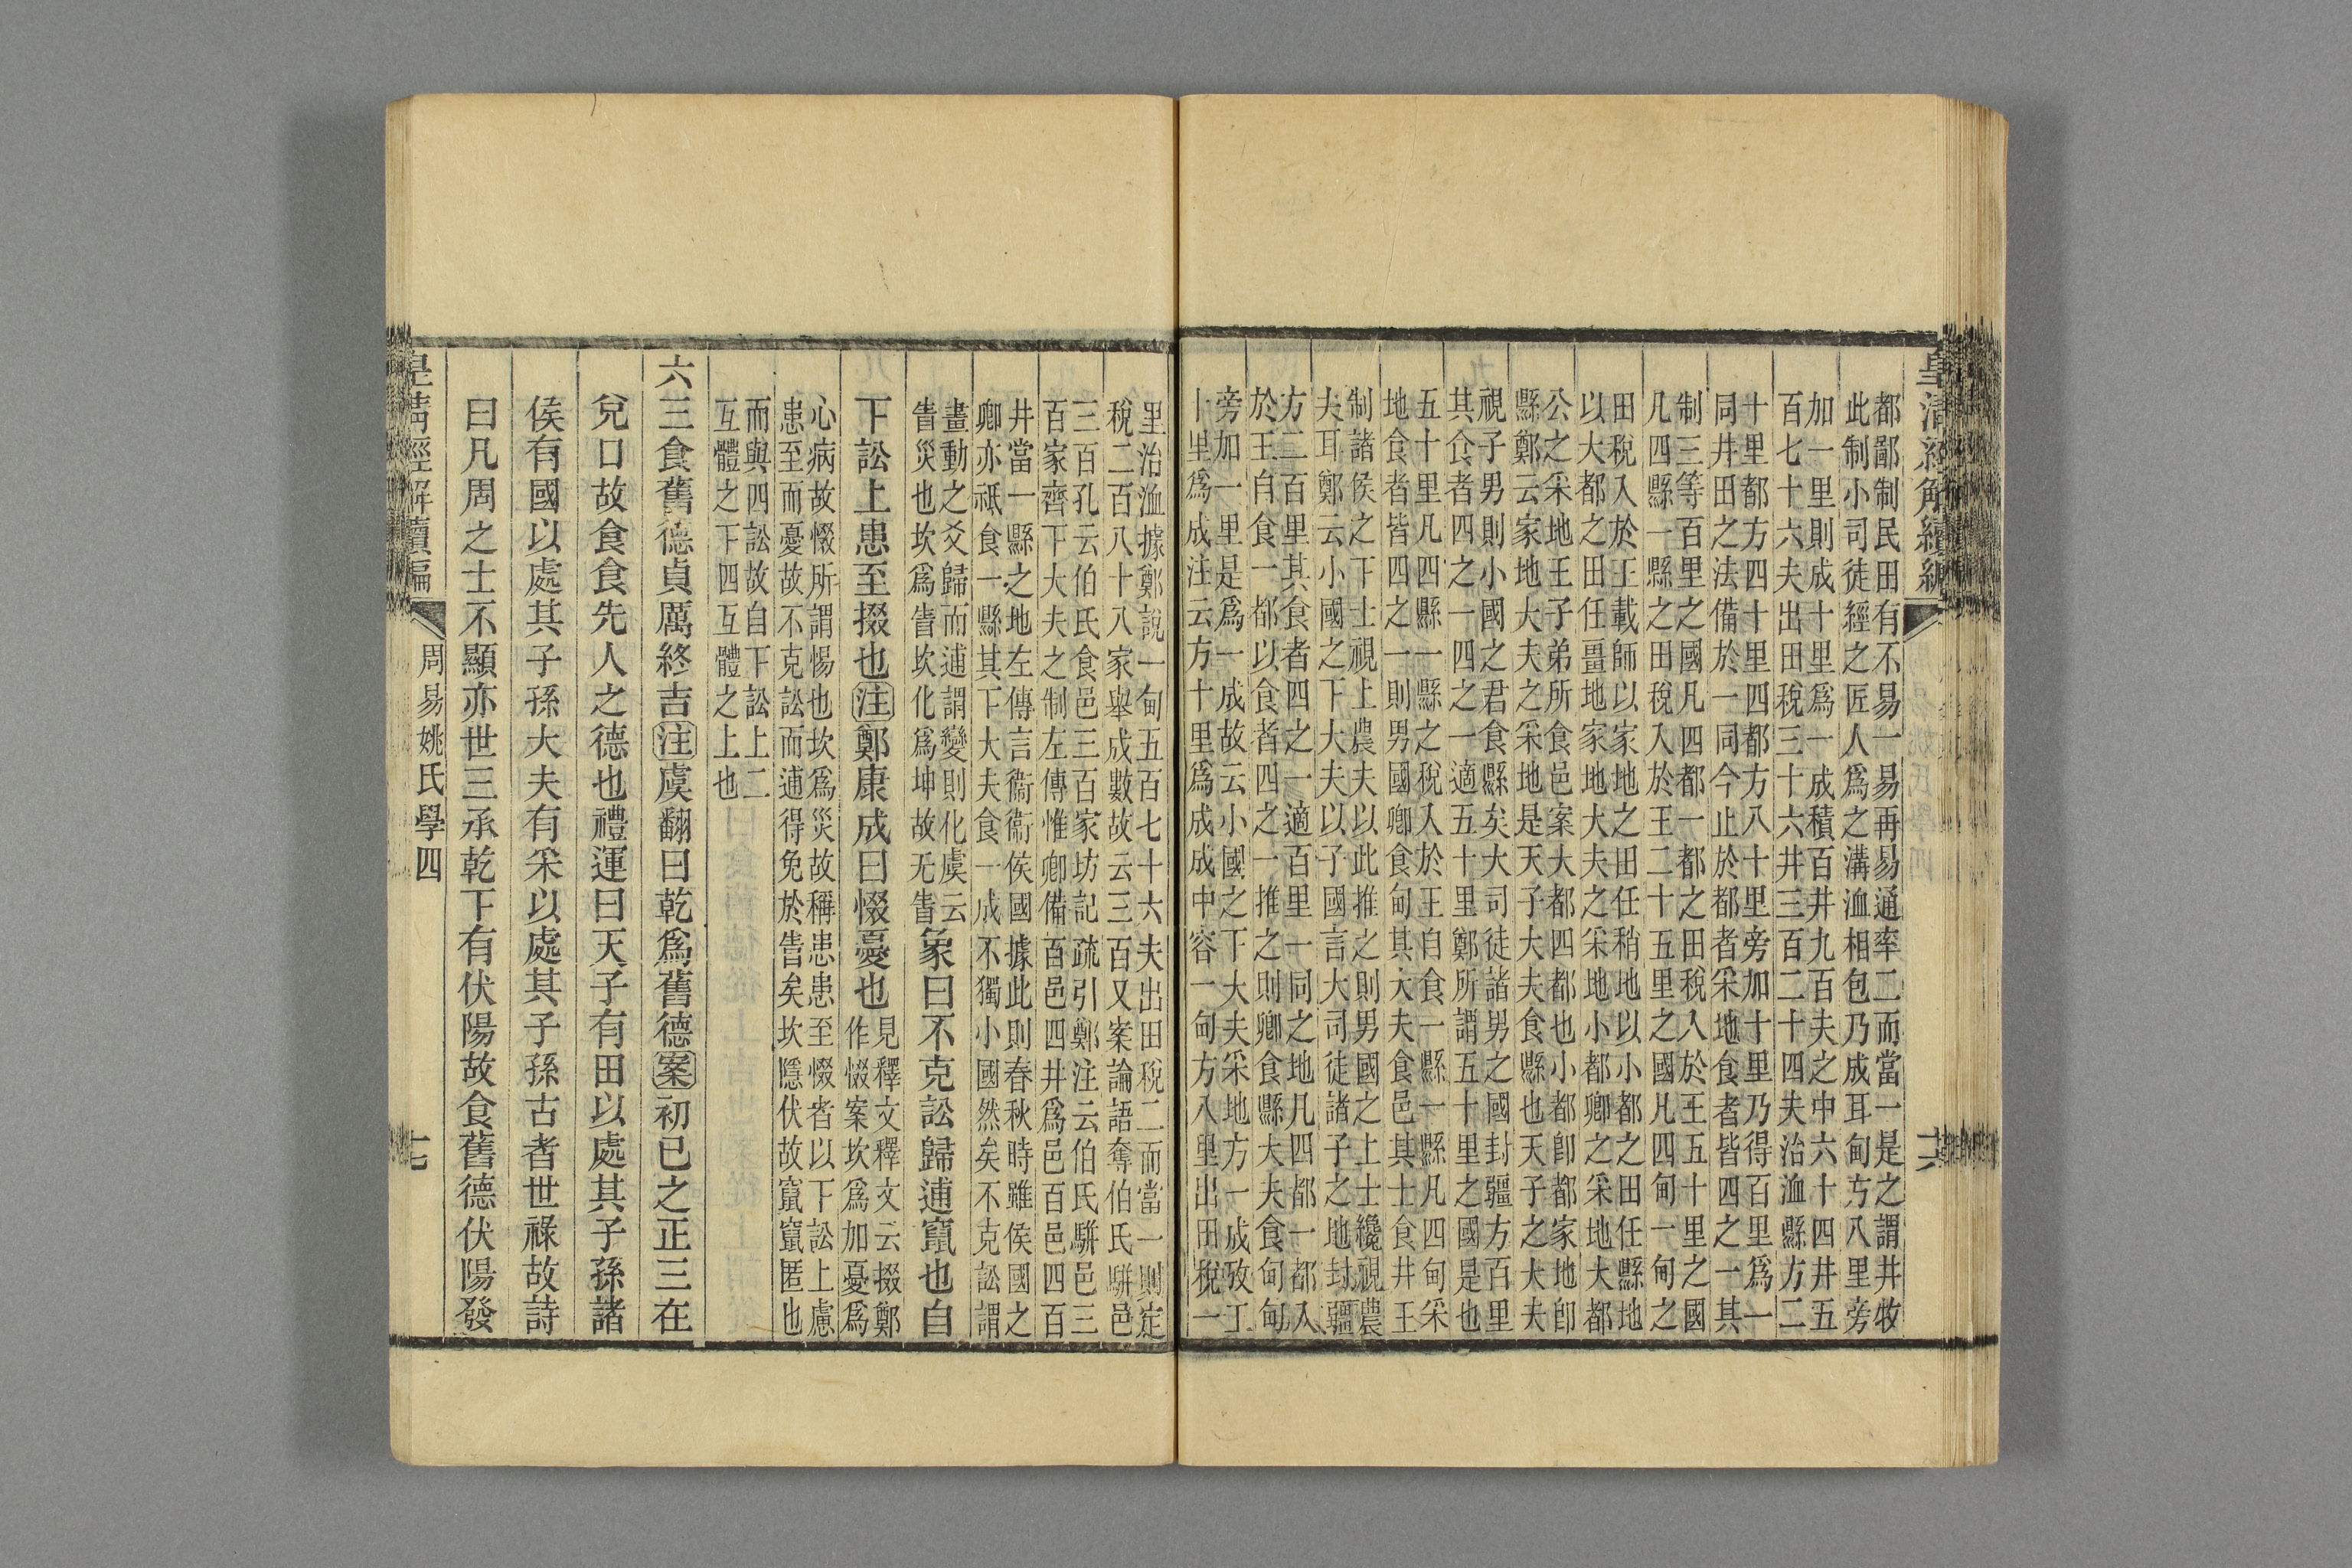 皇清經解續編
都鄙制民田有不易一易再易通率二而當一是之謂井牧
此制小司徒經之匠人爲之溝洫相包乃成耳甸方八里旁
加一里則成十里爲一成積百井九百夫之中六十四井五
百七十六夫出田稅三十六井三百二十四夫治洫縣方二
十里都方四十里四都方八十里旁加十里乃得百里爲一
同井田之法備於一同今止於都者采地食者皆四之一其
制三等百里之國凡四都一都之田稅入於王五十里之國
凡四縣一縣之田稅入於王二十五里之國凡四甸一甸之
田稅入於王載師以家地之田任稍地以小都之田任縣地
以大都之田任畺地家地大夫之采地小都卿之采地大都
公之采地王子弟所食邑案大都四都也小都卽都家地卽
縣鄭云家地大夫之采地是天子大夫食縣也天子之大夫
視子男則小國之君食縣矣大司徒諸男之國封疆方百里
其食者四之一四之一適五十里鄭所謂五十里之國是也
五十里凡四縣一縣之稅入於王自食一縣一縣凡四甸采
地食者皆四之一則男國卿食甸其大夫食邑其士食井王
制諸侯之下士視上農夫以此推之則男國之上士纔視農
夫耳鄭云小國之下大夫以子國言大司徒諸子之地封疆
方二百里其食者四之一適百里一同之地凡四都一都入
於王自食一都以食者四之一推之則卿食縣大夫食甸甸
旁加一里是爲一成故云小國之下大夫采地方一成攷工
十里爲成注云方十里爲成成中容一甸方八里出田稅一
里治洫據鄭說一甸五百七十六夫出田稅二而當一則定
稅二百八十八家舉成數故云三百又案論語奪伯氏駢邑
三百孔云伯氏食邑三百家坊記疏引鄭注云伯氏駢邑三
百家齊下大夫之制左傳惟卿備百邑四井爲邑百邑四百
井當一縣之地左傳言衞衞侯國據此則春秋時雖侯國之
卿亦祇食一縣其下大夫食一成不獨小國然矣不克訟謂
畫動之爻歸而逋謂變則化虞云
眚災也坎爲眚坎化爲坤故无眚
象曰不克訟歸逋竄也自
下訟上患至掇也注鄭康成曰惙憂也
見釋文釋文云掇鄭
作惙案坎爲加憂爲
心病故惙所謂惕也坎爲災故稱患患至惙者以下訟上慮
患至而憂故不克訟而逋得免於眚矣坎隱伏故竄竄匿也
而與四訟故自下訟上二
互體之下四互體之上也
六三食舊德貞厲終吉注虞翻曰乾爲舊德案初已之正三在
兌口故食食先人之德也禮運曰天子有田以處其子孫諸
侯有國以處其子孫大夫有采以處其子孫古者世祿故詩
曰凡周之士不顯亦世三承乾下有伏陽故食舊德伏陽發
皇清經解續編
周易姚氏學四
七